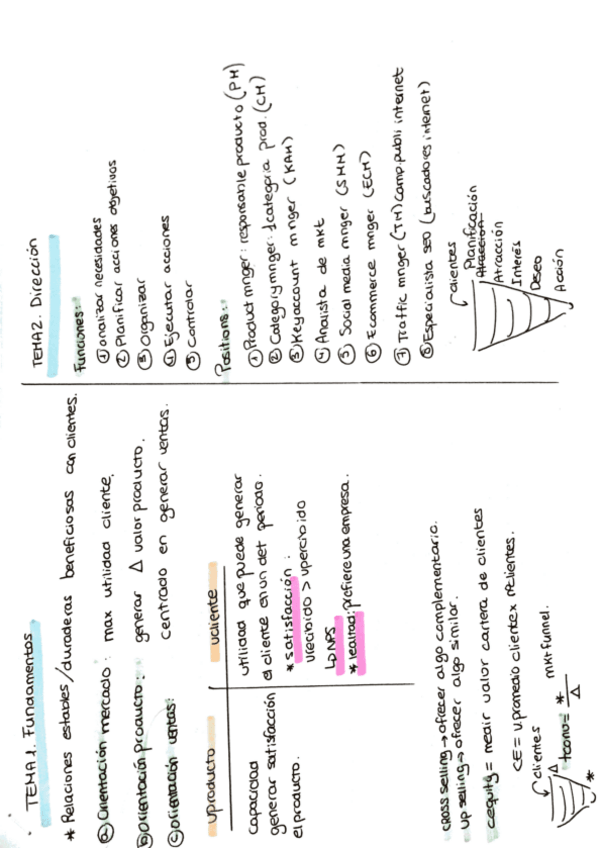 TEMA 1. Fundamentos
* Relaciones estables/duraderas beneficiosas con clientes.
ⓐ Orientación mercado: max utilidad cliente.
ⓑ Orientación producto: generar Δ valor producto.
ⓒ Orientación ventas: centrado en generar ventas.
uproducto
capacidad
generar satisfacción
el producto.
ucliente
utilidad que puede generar
el cliente en un det periodo.
* satisfacción:
urecibido > upercibido
↳ NPS
* lealtad: prefiere una empresa.
cross selling → ofrecer algo complementario.
up selling → ofrecer algo similar.
cequity = medir valor cartera de clientes
CE = u.promedio cliente x nºclientes.
clientes
Δ
tconv = * / Δ
mkt funnel.
*
TEMA 2. Dirección
Funciones:
① analizar necesidades
② Planificar acciones objetivos
③ organizar
④ Ejecutar acciones
⑤ Controlar
Positions:
① Product mnger: responsable producto (PM)
② Category mnger: 1 categoria prod. (CM)
③ Key account mnger (KAM)
④ Analista de mkt
⑤ Social media mnger (SMM)
⑥ Ecommerce mnger (ECM)
⑦ Traffic mnger (TM) camp. publi internet
⑧ Especialista SEO (buscadores internet)
clientes
Planificación
Atracción
Atracción
Interés
Deseo
Acción